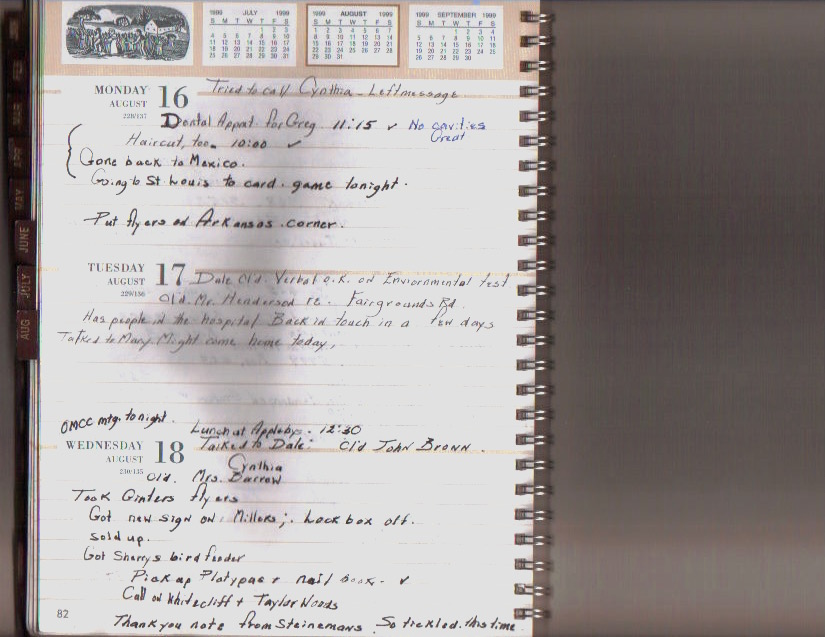 1999 JULY 1999
S M T W T F S
1 2 3
4 5 6 7 8 9 10
11 12 13 14 15 16 17
18 19 20 21 22 23 24
25 26 27 28 29 30 31
1999 AUGUST 1999
S M T W T F S
1 2 3 4 5 6 7
8 9 10 11 12 13 14
15 16 17 18 19 20 21
22 23 24 25 26 27 28
29 30 31
1999 SEPTEMBER 1999
S M T W T F S
1 2 3 4
5 6 7 8 9 10 11
12 13 14 15 16 17 18
19 20 21 22 23 24 25
26 27 28 29 30
MAR
APR
MAY
JUNE
JULY
AUG
MONDAY 16 Tried to call Cynthia - Left message
AUGUST
228/137
Dental Appmt. for Greg 11:15 ✓ No cavities
Great
Haircut, too. 10:00 ✓
Gone back to Mexico.
Going to St Louis to card game tonight.
Put flyers on Arkansas corner.
TUESDAY 17 Dale Cld. Verbal o.k. on Enviornmental test
AUGUST
229/136
Cld. Mr. Henderson re. Fairgrounds Rd.
Has people in the hospital Back in touch in a few days
Talked to Mary Might come home today,
OMCC mtg. tonight. Lunch at Applebys - 12:30
WEDNESDAY 18 Talked to Dale: Cl'd John Brown.
AUGUST
230/135
Cynthia
Cld. Mrs. Barrow
Took Ginters flyers
Got new sign on Millers; Lock box off.
sold up.
Got Sherrys bird feeder
Pick up Platypaer nail Book - ✓
Call on Whitecliff + Taylor Woods
Thank you note from Steinemans So tickled. this time
82